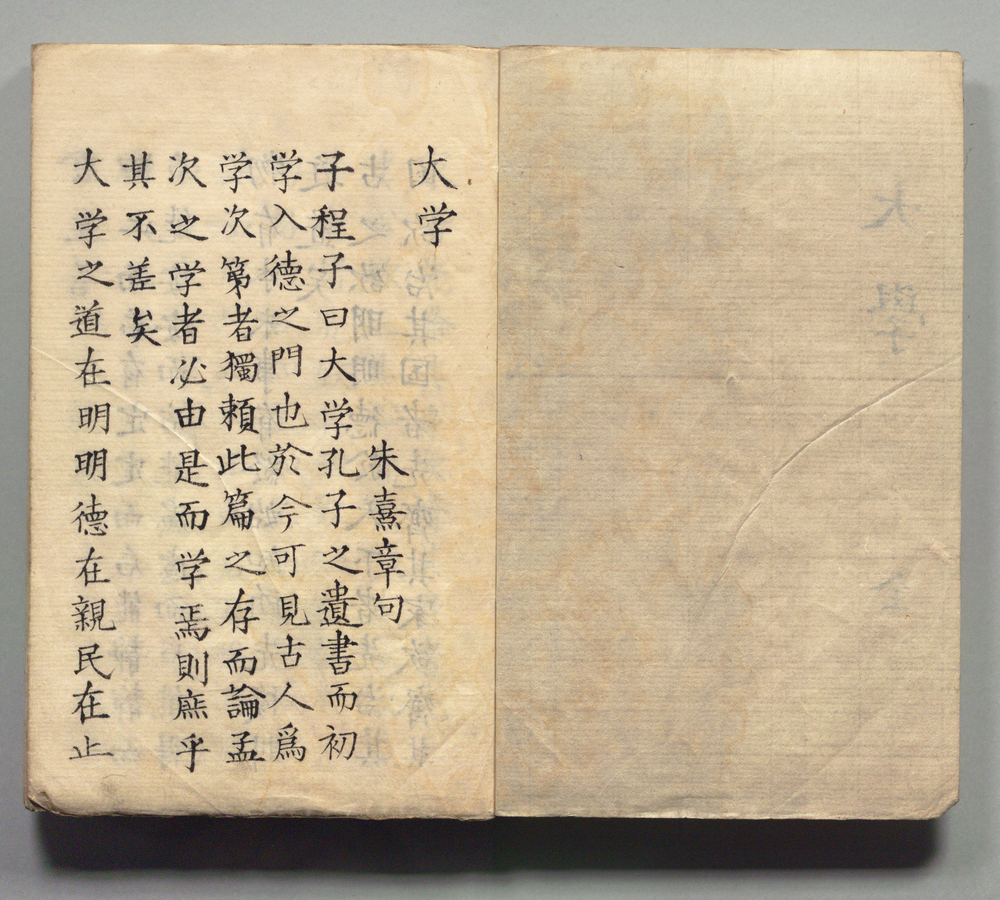 大学
朱熹章句
子程子曰大学孔子之遺書而初
学入德之門也於今可見古人爲
学次第者獨頼此篇之存而論孟
次之学者必由是而学焉則庶乎
其不差矣
大学之道在明明德在親民在止